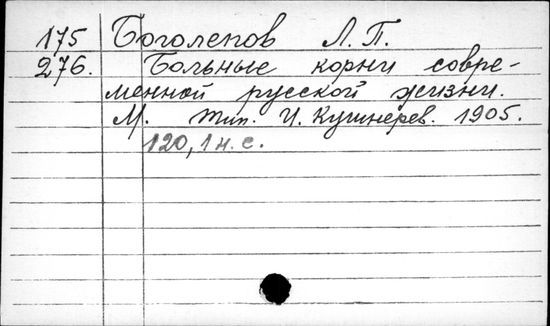 175 Боголепов Л.П.
276. Больные корни совре-
менной русской жизни.
М. тип. И. Кушнерев. 1905.
120, 1 н. с.